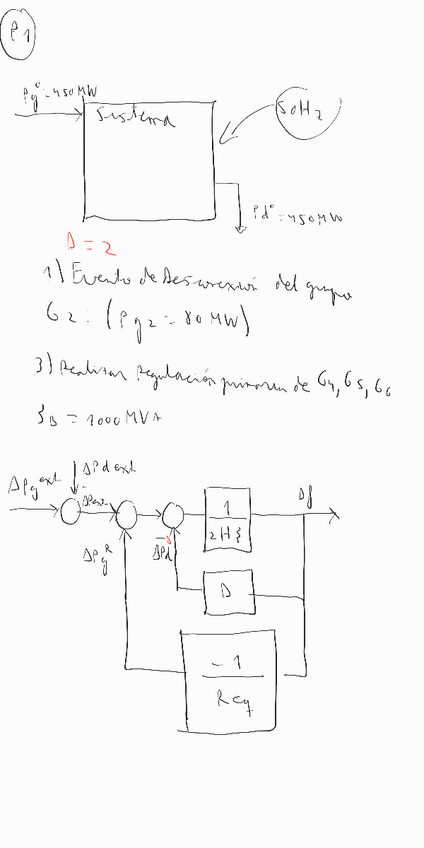 P1
Pg° = 450 MW
Sistema
50Hz
Pd° = 450 MW
D = 2
1) Evento de Desconexión del grupo
G2: (Pg2 = 80 MW)
3) Realizar Regulación primaria de G4, G5, G6
SB = 1000 MVA
ΔPg ext
ΔPd ext
-
ΔPext
1
2HS
Δf
ΔPg R
-
ΔPd
D
-1
Req